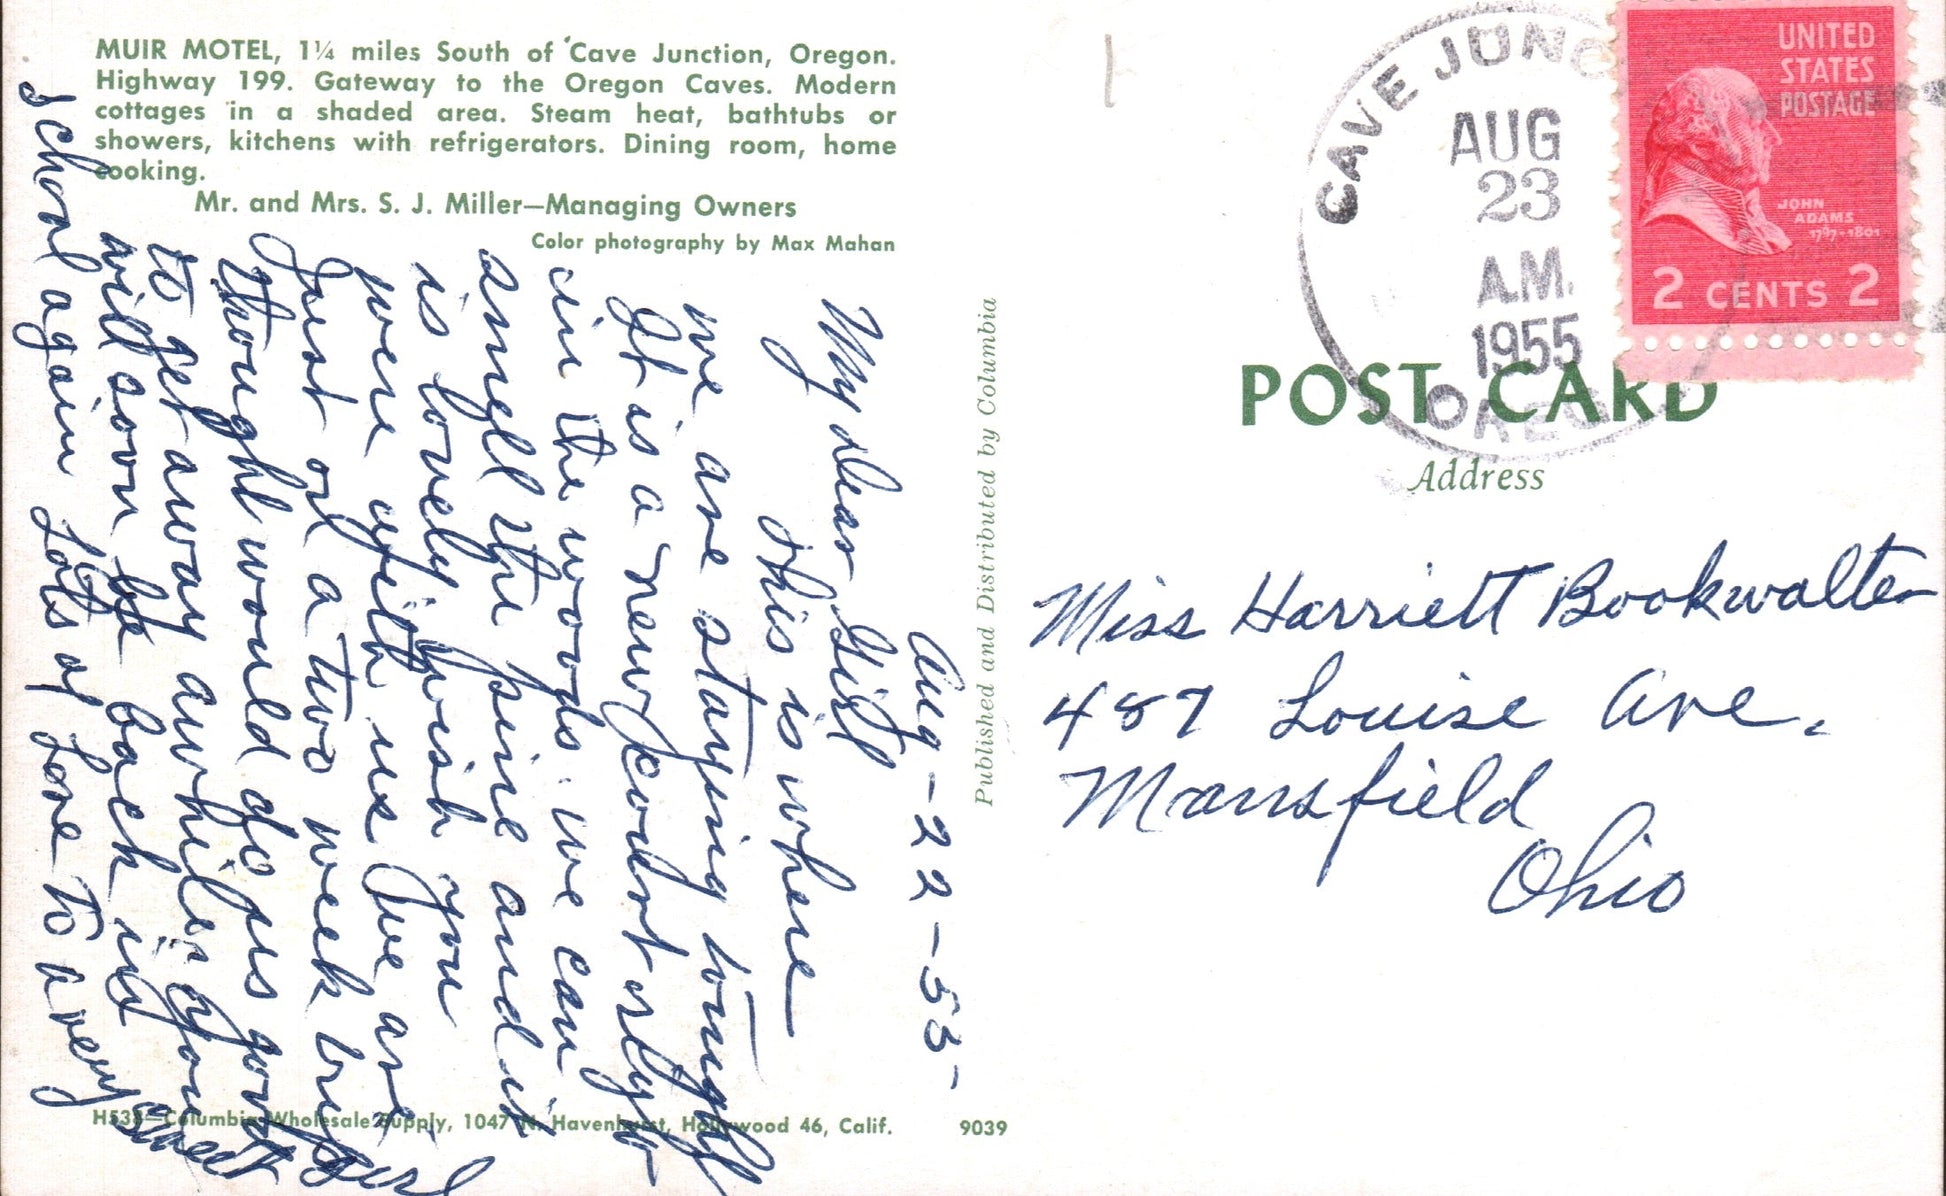 MUIR MOTEL, 1¼ miles South of Cave Junction, Oregon.
Highway 199. Gateway to the Oregon Caves. Modern
cottages in a shaded area. Steam heat, bathtubs or
showers, kitchens with refrigerators. Dining room, home
cooking.
Mr. and Mrs. S. J. Miller—Managing Owners
Color photography by Max Mahan
Aug - 22 - 55-
My dear Girl
This is where
we are staying tonight
It is a new court right
in the woods. we can
smell the pine and it
is lovely. wish you
were with us. We are
Just on a two week trip
thought would do us good
to get away awhile. you
will soon be back in
school again Lots of Love to a very
sweet girl
Published and Distributed by Columbia
H538—Columbia Wholesale Supply, 1047 N. Havenhurst, Hollywood 46, Calif.
9039
CAVE JUNC
AUG
23
A.M.
1955
OREG
UNITED
STATES
POSTAGE
JOHN
ADAMS
1797-1801
2 CENTS 2
POST CARD
Address
Miss Harriett Bookwalter
487 Louise Ave.
Mansfield
Ohio